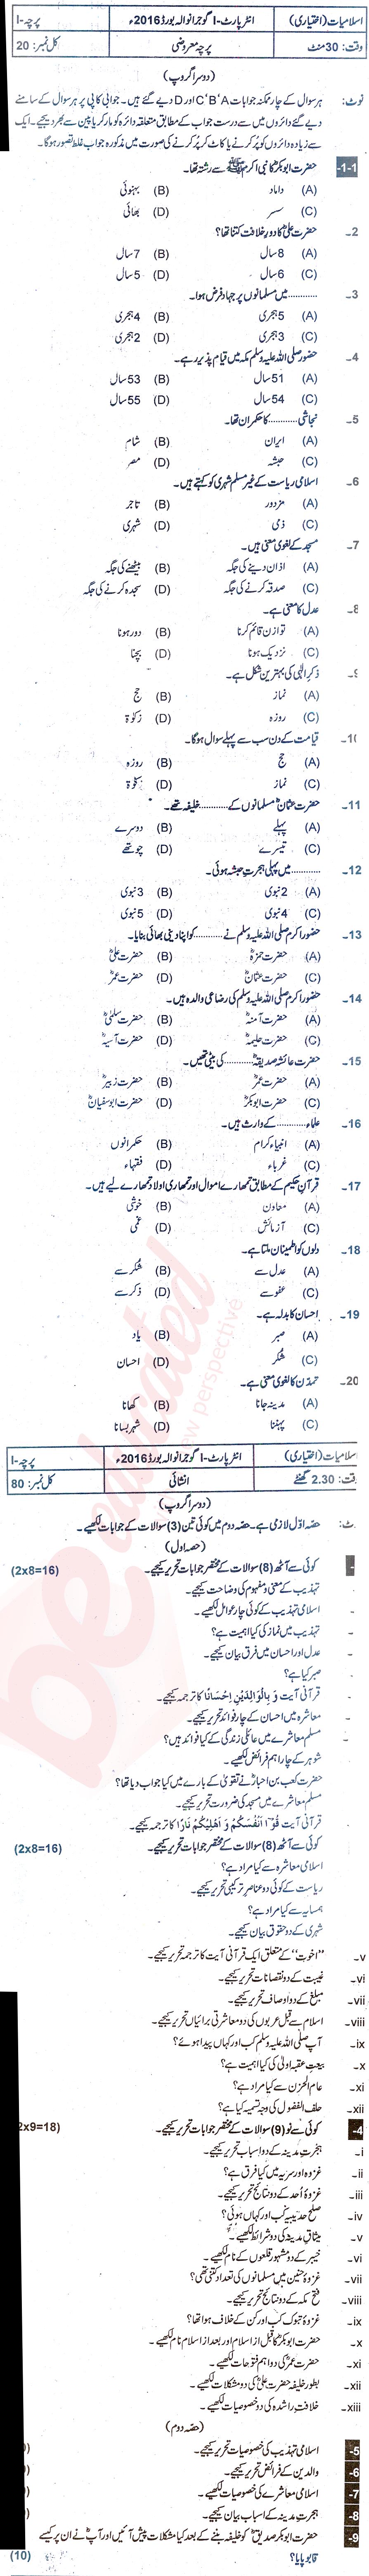 اسلامیات (اختیاری) انٹر پارٹ-I گوجرانوالہ بورڈ 2016ء پرچہ-I
وقت: 30 منٹ پرچہ معروضی کل نمبر: 20
(دوسرا گروپ)
نوٹ: ہر سوال کے چار ممکنہ جوابات A'B'C اور D دیے گئے ہیں۔ جوابی کاپی پر ہر سوال کے سامنے
دیے گئے دائروں میں سے درست جواب کے مطابق متعلقہ دائرہ کو مارکر یا پین سے بھر دیجیے۔ ایک
سے زیادہ دائروں کو پُر کرنے یا کاٹ کر پُر کرنے کی صورت میں مذکورہ جواب غلط تصور ہوگا۔
1-1- حضرت ابوبکرؓ کا نبی اکرم ﷺ سے رشتہ تھا۔
(A) داماد (B) بہنوئی
(C) سسر (D) بھائی
2- حضرت علیؓ کا دورِ خلافت کتنا تھا؟
(A) 8 سال (B) 7 سال
(C) 6 سال (D) 5 سال
3- ............ میں مسلمانوں پر جہاد فرض ہوا۔
(A) 5 ہجری (B) 4 ہجری
(C) 3 ہجری (D) 2 ہجری
4- حضور صلی اللہ علیہ وسلم مکہ میں قیام پذیر رہے۔
(A) 51 سال (B) 53 سال
(C) 54 سال (D) 55 سال
5- نجاشی ............ کا حکمران تھا۔
(A) ایران (B) شام
(C) حبشہ (D) مصر
6- اسلامی ریاست کے غیر مسلم شہری کو کہتے ہیں۔
(A) مزدور (B) تاجر
(C) ذمی (D) شہری
7- مسجد کے لغوی معنی ہیں۔
(A) اذان دینے کی جگہ (B) بیٹھنے کی جگہ
(C) صدقہ کرنے کی جگہ (D) سجدہ کرنے کی جگہ
8- عدل کا معنی ہے۔
(A) توازن قائم کرنا (B) دور ہونا
(C) نزدیک ہونا (D) بچنا
9- ذکر الٰہی کی بہترین شکل ہے۔
(A) نماز (B) حج
(C) روزہ (D) زکوٰۃ
10- قیامت کے دن سب سے پہلے سوال ہوگا۔
(A) حج (B) روزہ
(C) نماز (D) زکوٰۃ
11- حضرت عثمانؓ مسلمانوں کے ............ خلیفہ تھے۔
(A) پہلے (B) دوسرے
(C) تیسرے (D) چوتھے
12- ............ میں پہلی ہجرت حبشہ ہوئی۔
(A) 2 نبوی (B) 3 نبوی
(C) 4 نبوی (D) 5 نبوی
13- حضور اکرم صلی اللہ علیہ وسلم نے ............ کو اپنا دینی بھائی بنایا۔
(A) حضرت حمزہؓ (B) حضرت علیؓ
(C) حضرت عثمانؓ (D) حضرت عمرؓ
14- حضور اکرم صلی اللہ علیہ وسلم کی رضاعی والدہ ہیں۔
(A) حضرت آمنہؓ (B) حضرت سلمیٰؓ
(C) حضرت حلیمہؓ (D) حضرت آسیہؓ
15- حضرت عائشہ صدیقہؓ ............ کی بیٹی تھیں۔
(A) حضرت عمرؓ (B) حضرت زبیرؓ
(C) حضرت ابوبکرؓ (D) حضرت ابوسفیانؓ
16- علماء ............ کے وارث ہیں۔
(A) انبیاء کرام (B) حکمرانوں
(C) غرباء (D) فقہاء
17- قرآن حکیم کے مطابق تمہارے اموال اور تمہاری اولاد تمہارے لیے ہیں۔
(A) معاون (B) خوشی
(C) آزمائش (D) غمی
18- دلوں کو اطمینان ملتا ہے۔
(A) عدل سے (B) شکر سے
(C) عفو سے (D) ذکر سے
19- احسان کا بدلہ ہے۔
(A) صبر (B) یاد
(C) شکر (D) احسان
20- تمدن کا لغوی معنی ہے۔
(A) مدینہ جانا (B) کھانا
(C) پہننا (D) شہر بسانا
اسلامیات (اختیاری) انٹر پارٹ-I گوجرانوالہ بورڈ 2016ء پرچہ-I
وقت: 2.30 گھنٹے انشائی کل نمبر: 80
(دوسرا گروپ)
نوٹ: حصہ اوّل لازمی ہے۔ حصہ دوم میں کوئی تین (3) سوالات کے جوابات لکھیے۔
(حصہ اول)
کوئی سے آٹھ (8) سوالات کے مختصر جوابات تحریر کیجیے۔ (2x8=16)
تہذیب کے معنی و مفہوم کی وضاحت کیجیے۔
اسلامی تہذیب کے کوئی چار عوامل لکھیے۔
تہذیب میں نماز کی کیا اہمیت ہے؟
عدل اور احسان میں فرق بیان کیجیے۔
صبر کیا ہے؟
قرآنی آیت وَ بِالْوَالِدَیْنِ اِحْسَانًا کا ترجمہ کیجیے۔
معاشرہ میں احسان کے چار فوائد تحریر کیجیے۔
مسلم معاشرے میں عائلی زندگی کے کیا فوائد ہیں؟
شوہر کے چار اہم فرائض لکھیے۔
حضرت کعب بن احبارؓ نے تقویٰ کے بارے میں کیا جواب دیا تھا؟
مسلم معاشرے میں مسجد کی ضرورت تحریر کیجیے۔
قرآنی آیت قُوْۤا اَنْفُسَكُمْ وَ اَهْلِیْكُمْ نَارًا کا ترجمہ کیجیے۔
کوئی سے آٹھ (8) سوالات کے مختصر جوابات تحریر کیجیے۔ (2x8=16)
اسلامی معاشرہ سے کیا مراد ہے؟
ریاست کے کوئی دو عناصر ترکیبی تحریر کیجیے۔
ہمسایہ سے کیا مراد ہے؟
شہری کے دو حقوق بیان کیجیے۔
v- "اخوت" کے متعلق ایک قرآنی آیت کا ترجمہ تحریر کیجیے۔
vi- غیبت کے دو نقصانات تحریر کیجیے۔
vii- مبلغ کے دو اوصاف تحریر کیجیے۔
viii- اسلام سے قبل عربوں کی دو معاشرتی برائیاں تحریر کیجیے۔
ix- آپ صلی اللہ علیہ وسلم کب اور کہاں پیدا ہوئے؟
x- بیعت عقبہ اولیٰ کی کیا اہمیت ہے؟
xi- عام الحزن سے کیا مراد ہے؟
xii- حلف الفضول کی وجہ تسمیہ کیا ہے؟
4- کوئی سے نو (9) سوالات کے مختصر جوابات تحریر کیجیے۔ 2x9=18)
i- ہجرت مدینہ کے دو اسباب تحریر کیجیے۔
ii- غزوہ اور سریہ میں کیا فرق ہے؟
iii- غزوہ اُحد کے دو نتائج تحریر کیجیے۔
iv- صلح حدیبیہ کب اور کہاں ہوئی؟
v- میثاق مدینہ کی دو شرائط لکھیے۔
vi- خیبر کے دو مشہور قلعوں کے نام لکھیے۔
vii- غزوہ حنین میں مسلمانوں کی تعداد کتنی تھی؟
viii- فتح مکہ کے دو نتائج تحریر کیجیے۔
ix- غزوہ تبوک کب اور کن کے خلاف ہوا تھا؟
x- حضرت ابوبکرؓ کا قبل از اسلام اور بعد از اسلام نام لکھیے۔
xi- حضرت عمرؓ کی دو اہم فتوحات لکھیے۔
xii- بطور خلیفہ حضرت علیؓ کی دو مشکلات لکھیے۔
xiii- خلافت راشدہ کی دو خصوصیات لکھیے۔
(حصہ دوم)
5- اسلامی تہذیب کی خصوصیات تحریر کیجیے۔
6- والدین کے فرائض تحریر کیجیے۔
7- اسلامی معاشرے کی خصوصیات لکھیے۔
8- ہجرت مدینہ کے اسباب بیان کیجیے۔
9- حضرت ابوبکر صدیقؓ کو خلیفہ بننے کے بعد کیا مشکلات پیش آئیں اور آپؓ نے ان پر کیسے
قابو پایا؟ (10)